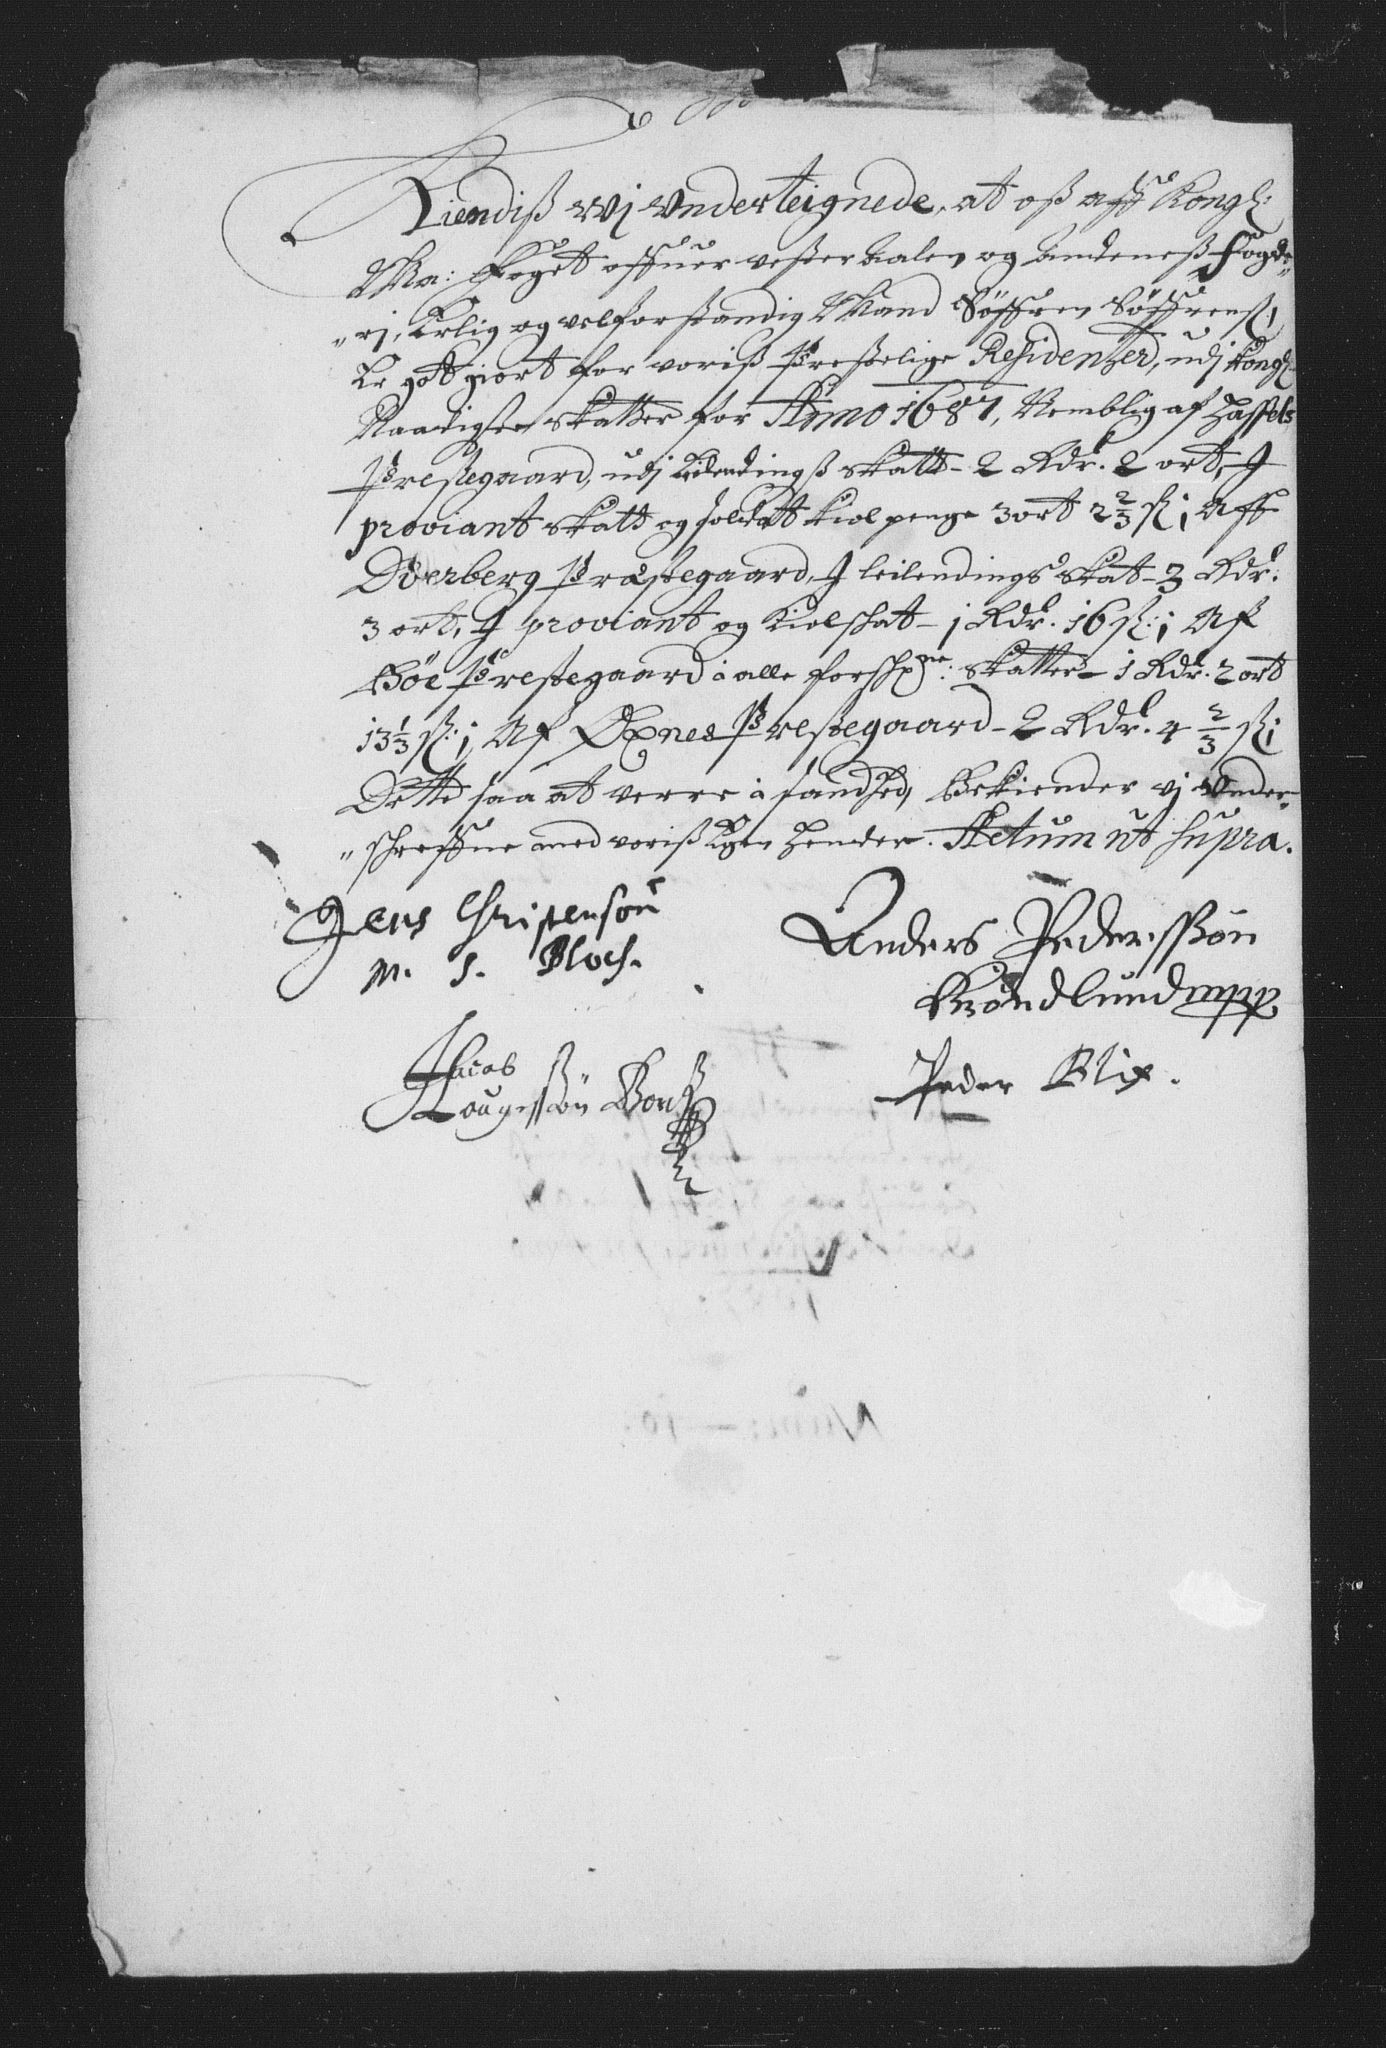 Kiendiß Wj Underteignede, at oß aff Kongl:
Ma: Foget offuer vesteraalen og Andeneß Fogde„
„rj, Erlig og velforstandig Mand Söffren Söffrenß:
Er got giort for voriß Prestelige Residentzer, udj Kongl:
Naadigste Skatter for Anno 1687, Nemblig af Hassels
Prestegaard, udj Leilendingß Skatt - 2 Rdr. 2 ort, J
proviant Skatt og soldat Kiol penge 3 ort 2 2/3 ß; Aff
Dverberg Præstegaard, J leilendings Skat - 3 Rdr:
3 ort, J proviant og Kiolschat - j Rdr. 16 ß:; Af
Böe Prestegaard i alle forschr.ne: Skatter - 1 Rdr. 2 ort
13 1/3 ß:; Af Øxnes Prestegaard - 2 Rdr. 4 2/3 ß;
Dette saa at verre i sandhed, Bekiender vj Under„
„schreffne med voriß Egen Hender. Actum ut supra.
Jens Christensøn
M. S. Bloch.
Anders Pederssøn
Röndlund mpp
Jacob
Lougessön Bork
Peder Blix.